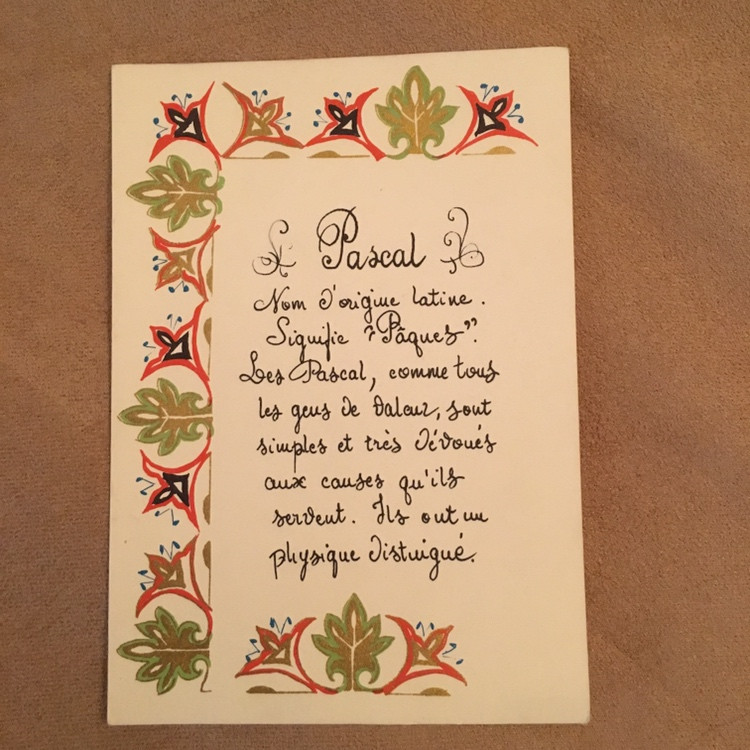 Pascal
Nom d'origine latine.
Signifie "Pâques".
Les Pascal, comme tous
les gens de valeur, sont
simples et très dévoués
aux causes qu'ils
servent. Ils ont un
physique distingué.